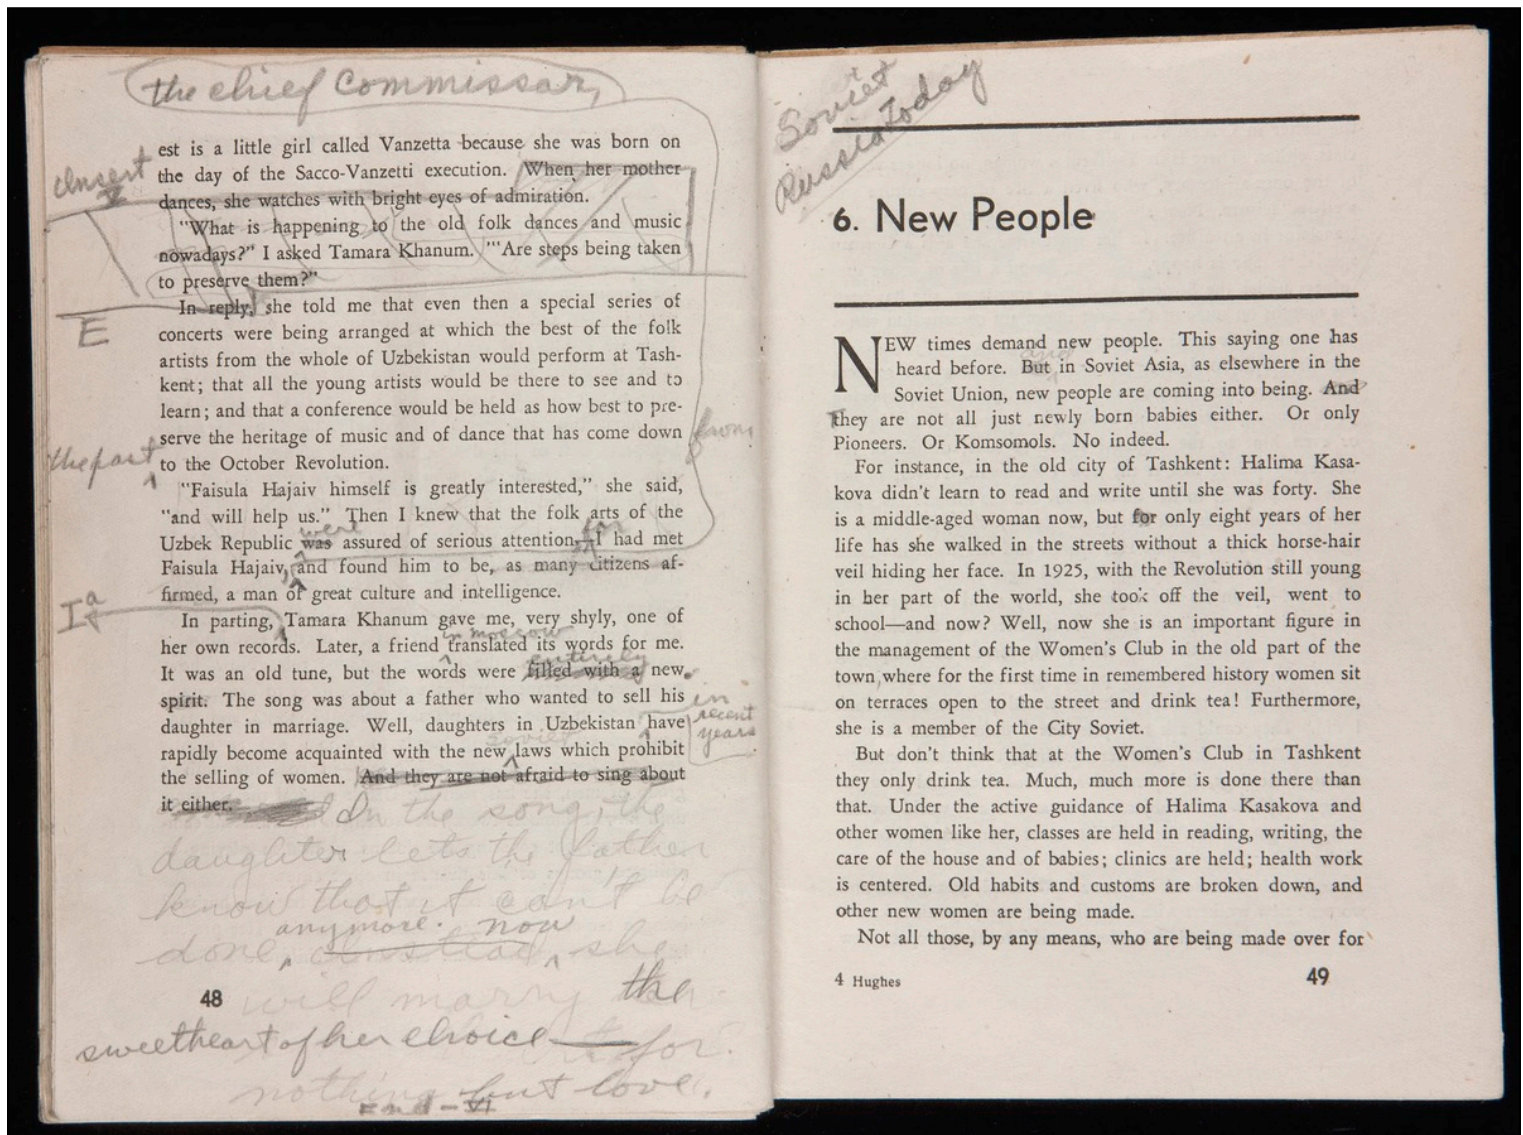 the chief Commissar,
est is a little girl called Vanzetta because she was born on
Insert
the day of the Sacco-Vanzetti execution. When her mother
dances, she watches with bright eyes of admiration.
"What is happening to the old folk dances and music
nowadays?" I asked Tamara Khanum. "'Are steps being taken
to preserve them?"
In reply, she told me that even then a special series of
E
concerts were being arranged at which the best of the folk
artists from the whole of Uzbekistan would perform at Tash-
kent; that all the young artists would be there to see and to
learn; and that a conference would be held as how best to pre-
serve the heritage of music and of dance that has come down from
the past
to the October Revolution.
"Faisula Hajaiv himself is greatly interested," she said,
"and will help us." Then I knew that the folk arts of the
were for
Uzbek Republic was assured of serious attention, I had met
Faisula Hajaiv, and found him to be, as many citizens af-
firmed, a man of great culture and intelligence.
In parting, Tamara Khanum gave me, very shyly, one of
in Moscow
her own records. Later, a friend translated its words for me.
entirely
It was an old tune, but the words were filled with a new
spirit. The song was about a father who wanted to sell his
in recent years
daughter in marriage. Well, daughters in Uzbekistan have
soviet
rapidly become acquainted with the new laws which prohibit
the selling of women. And they are not afraid to sing about
it either.
In the song, the
daughter lets the father
know that it can't be
anymore. now
done, Instead she
will marry the
48
sweetheart of her choice— for
nothing but love.
End-VI
Soviet
Russia Today
6. New People
NEW times demand new people. This saying one has
and
heard before. But in Soviet Asia, as elsewhere in the
Soviet Union, new people are coming into being. And
They are not all just newly born babies either. Or only
Pioneers. Or Komsomols. No indeed.
For instance, in the old city of Tashkent: Halima Kasa-
kova didn't learn to read and write until she was forty. She
is a middle-aged woman now, but for only eight years of her
life has she walked in the streets without a thick horse-hair
veil hiding her face. In 1925, with the Revolution still young
in her part of the world, she took off the veil, went to
school—and now? Well, now she is an important figure in
the management of the Women's Club in the old part of the
town, where for the first time in remembered history women sit
on terraces open to the street and drink tea! Furthermore,
she is a member of the City Soviet.
But don't think that at the Women's Club in Tashkent
they only drink tea. Much, much more is done there than
that. Under the active guidance of Halima Kasakova and
other women like her, classes are held in reading, writing, the
care of the house and of babies; clinics are held; health work
is centered. Old habits and customs are broken down, and
other new women are being made.
Not all those, by any means, who are being made over for
4 Hughes
49